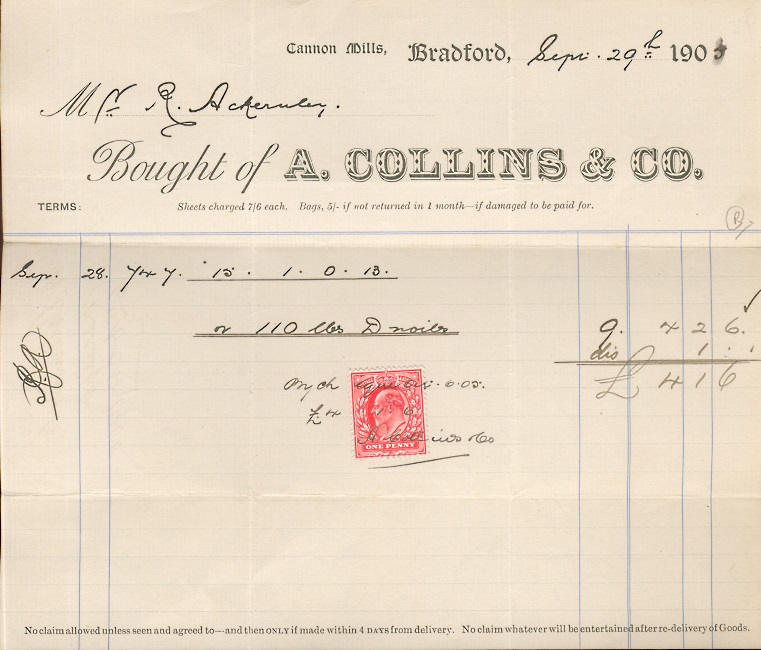 Cannon Mills, Bradford, Sep. 29th 1905
Mr. R. Ackernley.
Bought of A. COLLINS & CO.
TERMS: Sheets charged 7/6 each. Bags, 5/- if not returned in 1 month—if damaged to be paid for.
Sep. 28. 15. 1. 0. 13.
or 110 lbs D noils 9. 4 2 6.
dis 1 . .
£ 4 1 6
£4
A Collins & Co
ONE PENNY
No claim allowed unless seen and agreed to—and then ONLY if made within 4 DAYS from delivery. No claim whatever will be entertained after re-delivery of Goods.